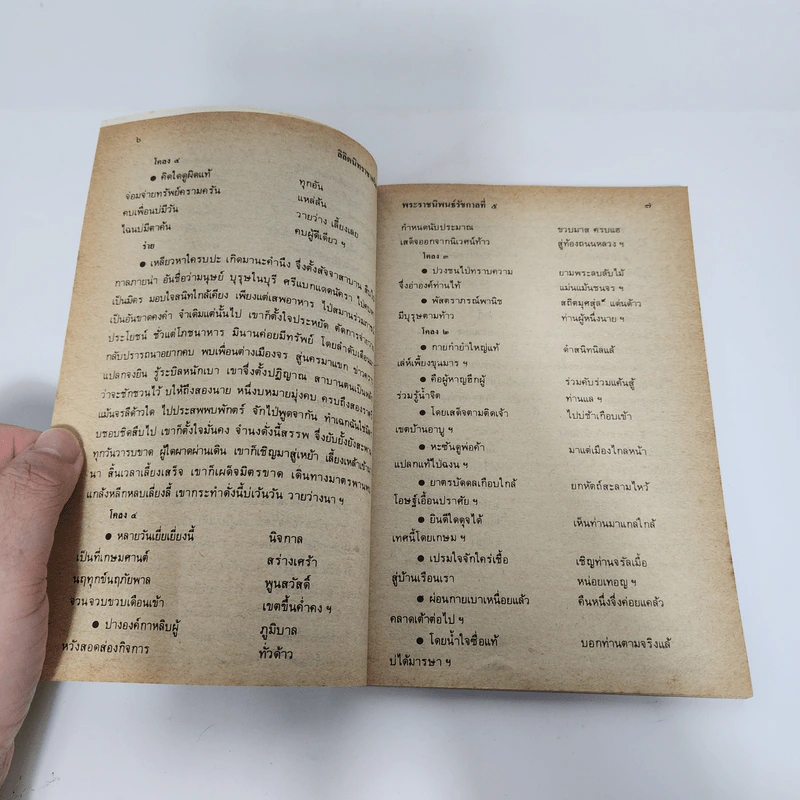 ๖
ลิลิตนิทรา
โคลง ๔
● คิดใดดูผิดแท้ ทุกอัน
จ่อมจ่ายทรัพย์ครามครัน แหล่ล้น
คบเพื่อนบ่มีวัน วายว่าง เลี้ยงเลย
ไฉนบ่มีตาค้น คบผู้ดีเดียว ฯ
ร่าย
● เหลียวหาใครบปะ เกิดมานะคำนึง จึ่งตั้งสัจจาสาบาน
กาลภายน่า อันชื่อว่ามนุษย์ บุรุษในบุรี ศรีแบกแดดนัครา
เป็นมิตร มอบใจสนิทใกล้เคียง เพียงแต่เสพอาหาร ไปสมานร่วม
เป็นอันขาดคงคำ จำเดิมแต่นั้นไป เขาก็ตั้งใจประหยัด คัดการ
ประโยชน์ ชั่วแต่โภชนาหาร มินานค่อยมีทรัพย์ โดยลำดับเดือน
กลับปรารถนาอยากคบ พบเพื่อนต่างเมืองจร สู่นครมาแขก
แปลกจงยิน รู้ระบิลหนักเบา เขาจึ่งตั้งปฏิญาณ สาบานตนเป็น
ว่าจะชักชวนไว้ บให้ถึงสองนาย หนึ่งบหมายมุ่งคบ ครบถึงสอง
แม้นจรลีด้าวใด ไปประสพพบพักตร์ จักไปพูดจากัน ทำเฉกฉัน
บชอบชิดสืบไป เขาก็ตั้งใจมั่นคง จำนงดั่งนี้สรรพ จึ่งยับยั้ง
ทุกวันวารบขาด ผู้ใดผาดผ่านเดิน เขาก็เชิญมาสู่เหย้า เลี้ยงเหล้า
นา สิ้นเวลาเลี้ยงเสร็จ เขาก็เผด็จมิตรขาด เดินทางมาตร
แกล้งหลีกหลบเลี่ยงลี้ เขากระทำดั่งนี้บ่เว้นวัน วายว่างนา ฯ
โคลง ๔
● หลายวันเยี่ยเยี่ยงนี้ นิจกาล
เป็นที่เกษมศานต์ สร่างเศร้า
นฤทุกข์นฤภัยพาล พูนสวัสดิ์
จวนจวบขวบเดือนเข้า เขตขึ้นค่ำคง ฯ
● ปางองค์กาหลิบผู้ ภูมิบาล
หวังสอดส่องกิจการ ทั่วด้าว
พระราชนิพนธ์รัชกาลที่ ๕ ๗
กำหนดนับประมาณ ขวบมาส ครบแฮ
เสด็จออกจากนิเวศน์ท้าว สู่ท้องถนนหลวง ฯ
โคลง ๓
● ปวงชนไปทราบความ ยามพระลบดับไม้
จึ่งอ่าองค์ท่านไท้ แม่นแม้นชนจร ฯ
● พัสตราภรณ์พานิช สถิตมุศสุล แดนด้าว
มีบุรุษตามท้าว ท่านผู้หนึ่งนาย ฯ
โคลง ๒
● กายกำยำใหญ่แท้ ดำสนิทนิลแล้
เล่ห์เพี้ยงขุนมาร ฯ
● คือผู้หาญฮึกผู้ ร่วมคับร่วมแค้นสู้
ร่วมรู้น้ำจิต ท่านแล ฯ
● โดยเสด็จตามติดเจ้า ไปบ่ช้าเกือบเข้า
เขตบ้านอาบู ฯ
● หะซันดูพ่อค้า มาแต่เมืองไกลหน้า
แปลกแท้ไป่ฉงน ฯ
● ยาตรบัดดลเกือบใกล้ ยกหัตถ์สะลามไหว้
โอษฐ์เอื้อนปราศัย ฯ
● ยินดีใดดุจได้ เห็นท่านมาแกล่ใกล้
เทศนี้โดยเกษม ฯ
● เปรมใจจักใคร่เชื้อ เชิญท่านจรัลเมื้อ
สู่บ้านเรือนเรา หน่อยเทอญ ฯ
● ผ่อนกายเบาเหนื่อยแล้ว คืนหนึ่งจึ่งค่อยแคล้ว
คลาดเต้าต่อไป ฯ
● โดยน้ำใจซื่อแท้ บอกท่านตามจริงแล้
บ่ได้มารษา ฯ